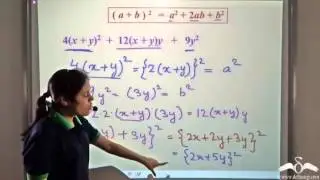 (a+b)² = a² + 2ab + b²
4(x+y)² + 12(x+y)y + 9y²
4(x+y)² = {2(x+y)}² = a²
y² = (3y)² = b²
2·2·(x+y)(3y) = 12(x+y)y
y) + 3y}² = {2x+2y+3y}²
= {2x+5y}²